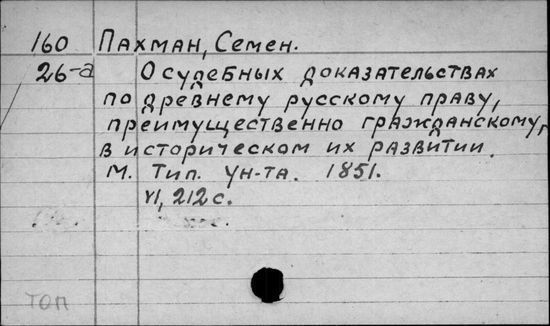 160 Пахман, Семен.
26-а О судебных доказательствах
по древнему русскому праву,
преимущественно гражданскому,
в историческом их развитии.
М. Тип. Ун-та. 1851.
VI, 212 с.
Топ